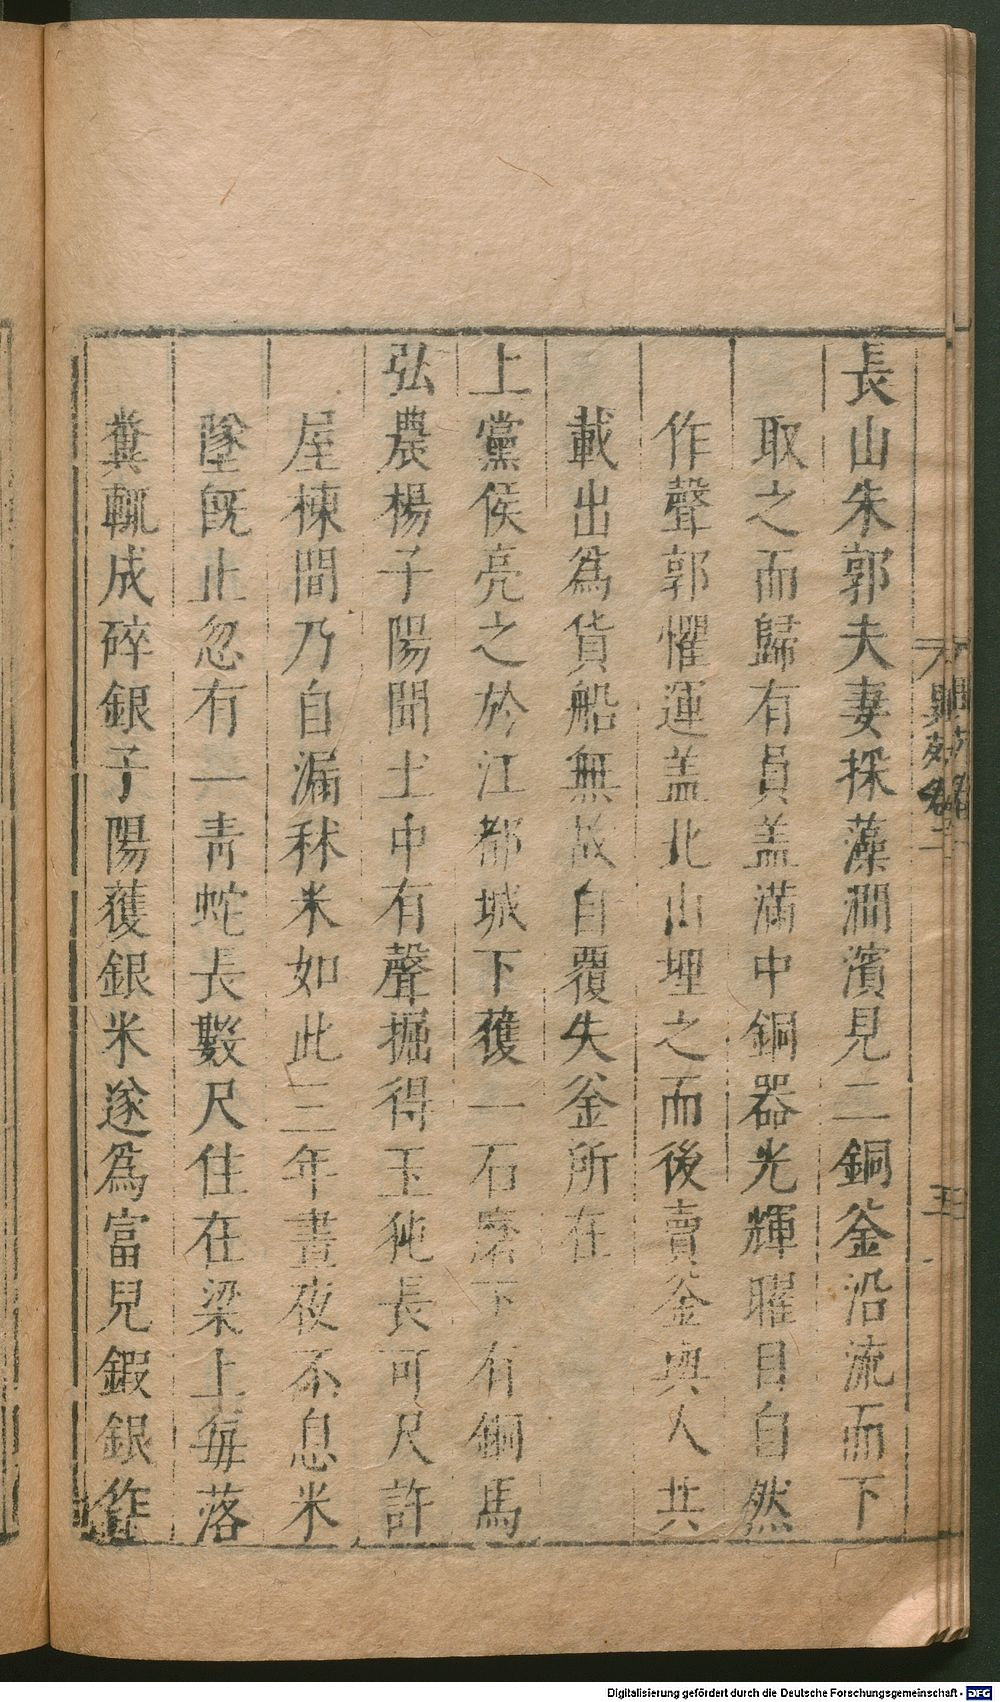 長山朱郭夫妻採藻澗濱見二銅釜沿流而下
取之而歸有員盖滿中銅器光輝曜目自然
作聲郭懼運盖北山埋之而後賣釜與人共
載出爲貨船無故自覆失釜所在
上黨侯亮之於江都城下獲一石磨下有銅馬
弘農楊子陽聞土中有聲掘得玉㹠長可尺許
屋棟間乃自漏秫米如此三年晝夜不息米
墜旣止忽有一青蛇長數尺住在梁上每落
糞輒成碎銀子陽獲銀米遂爲富兒鍜銀作
異苑卷二
Digitalisierung gefördert durch die Deutsche Forschungsgemeinschaft - DFG